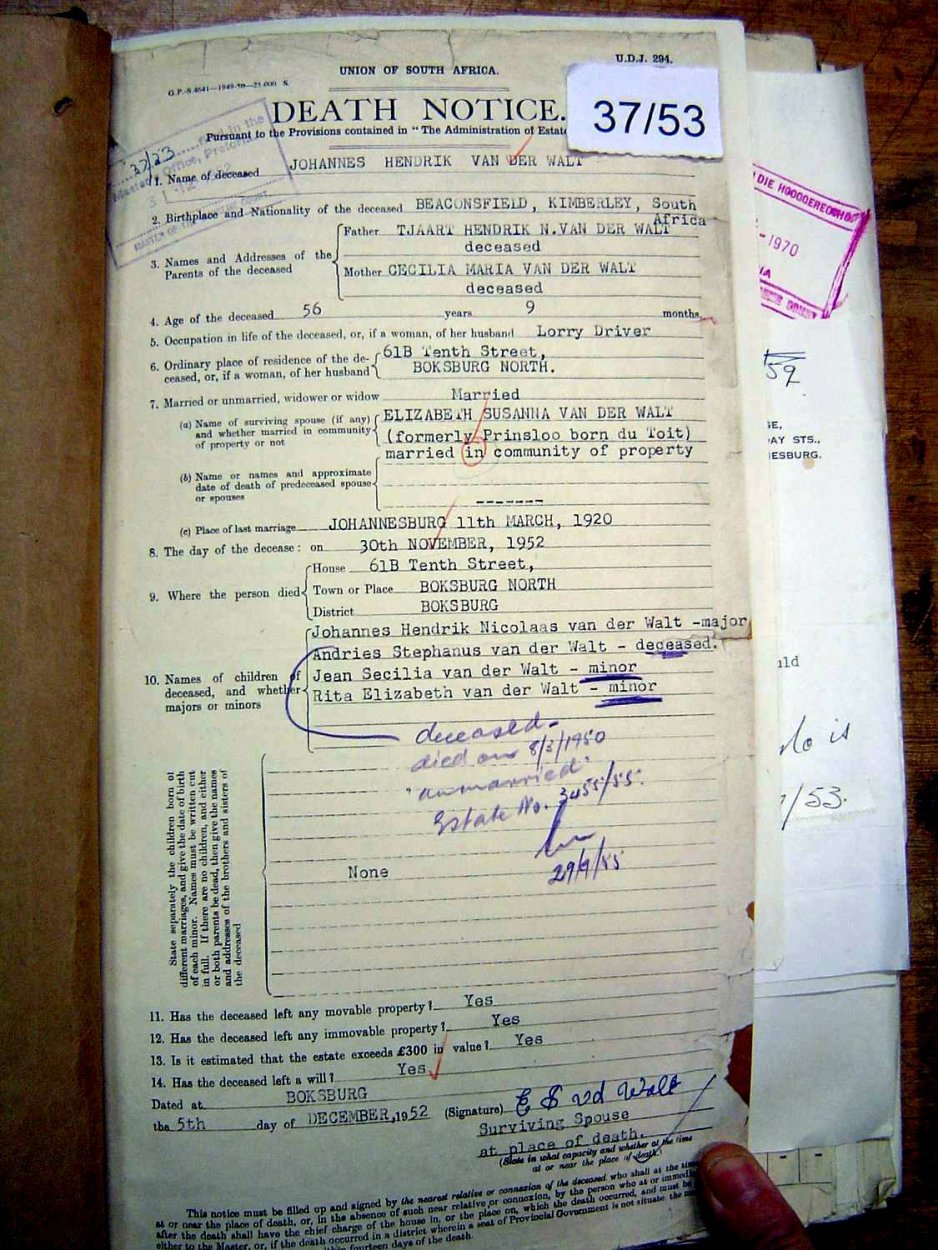 U.D.J. 294.
UNION OF SOUTH AFRICA.
G.P.-S.4641—1949-50—25,000 S.
DEATH NOTICE.
37/53
Pursuant to the Provisions contained in "The Administration of Estate
1. Name of deceased JOHANNES HENDRIK VAN DER WALT
2. Birthplace and Nationality of the deceased BEACONSFIELD, KIMBERLEY, South
Africa
3. Names and Addresses of the Parents of the deceased
Father TJAART HENDRIK N.VAN DER WALT
deceased
Mother CECILIA MARIA VAN DER WALT
deceased
4. Age of the deceased 56 years 9 months
5. Occupation in life of the deceased, or, if a woman, of her husband Lorry Driver
6. Ordinary place of residence of the de-
ceased, or, if a woman, of her husband
61B Tenth Street,
BOKSBURG NORTH.
7. Married or unmarried, widower or widow Married
(a) Name of surviving spouse (if any)
and whether married in community
of property or not
ELIZABETH SUSANNA VAN DER WALT
(formerly Prinsloo born du Toit)
married in community of property
(b) Name or names and approximate
date of death of predeceased spouse
or spouses
-------
(c) Place of last marriage JOHANNESBURG 11th MARCH, 1920
8. The day of the decease: on 30th NOVEMBER, 1952
9. Where the person died
House 61B Tenth Street,
Town or Place BOKSBURG NORTH
District BOKSBURG
10. Names of children of
deceased, and whether
majors or minors
Johannes Hendrik Nicolaas van der Walt -major
Andries Stephanus van der Walt - deceased.
Jean Secilia van der Walt - minor
Rita Elizabeth van der Walt - minor
deceased -
died on 8/3/1950
"unmarried"
Estate No. 3455/55.
29/9/55
State separately the children born of
different marriages, and give the date of birth
of each minor. Names must be written out
in full. If there are no children, and either
or both parents be dead, then give the names
and addresses of the brothers and sisters of
the deceased
None
11. Has the deceased left any movable property? Yes
12. Has the deceased left any immovable property? Yes
13. Is it estimated that the estate exceeds £300 in value? Yes
14. Has the deceased left a will? Yes
Dated at BOKSBURG
the 5th day of DECEMBER, 1952 (Signature) E S vd Walt
Surviving Spouse
at place of death.
(State in what capacity and whether at the time
at or near the place of death.)
This notice must be filled up and signed by the nearest relative or connexion of the deceased who shall at the time
at or near the place of death, or, in the absence of such near relative or connexion, by the person who at or immedi
after the death shall have the chief charge of the house in, or the place on, which the death occurred, and must be
either to the Master, or, if the death occurred in a district wherein a seat of Provincial Government is not situate the
fourteen days of the death.
DIE HOOGGEREGSHOF
-1970
59
AY STS.,
ESBURG.
uld
is
/53.